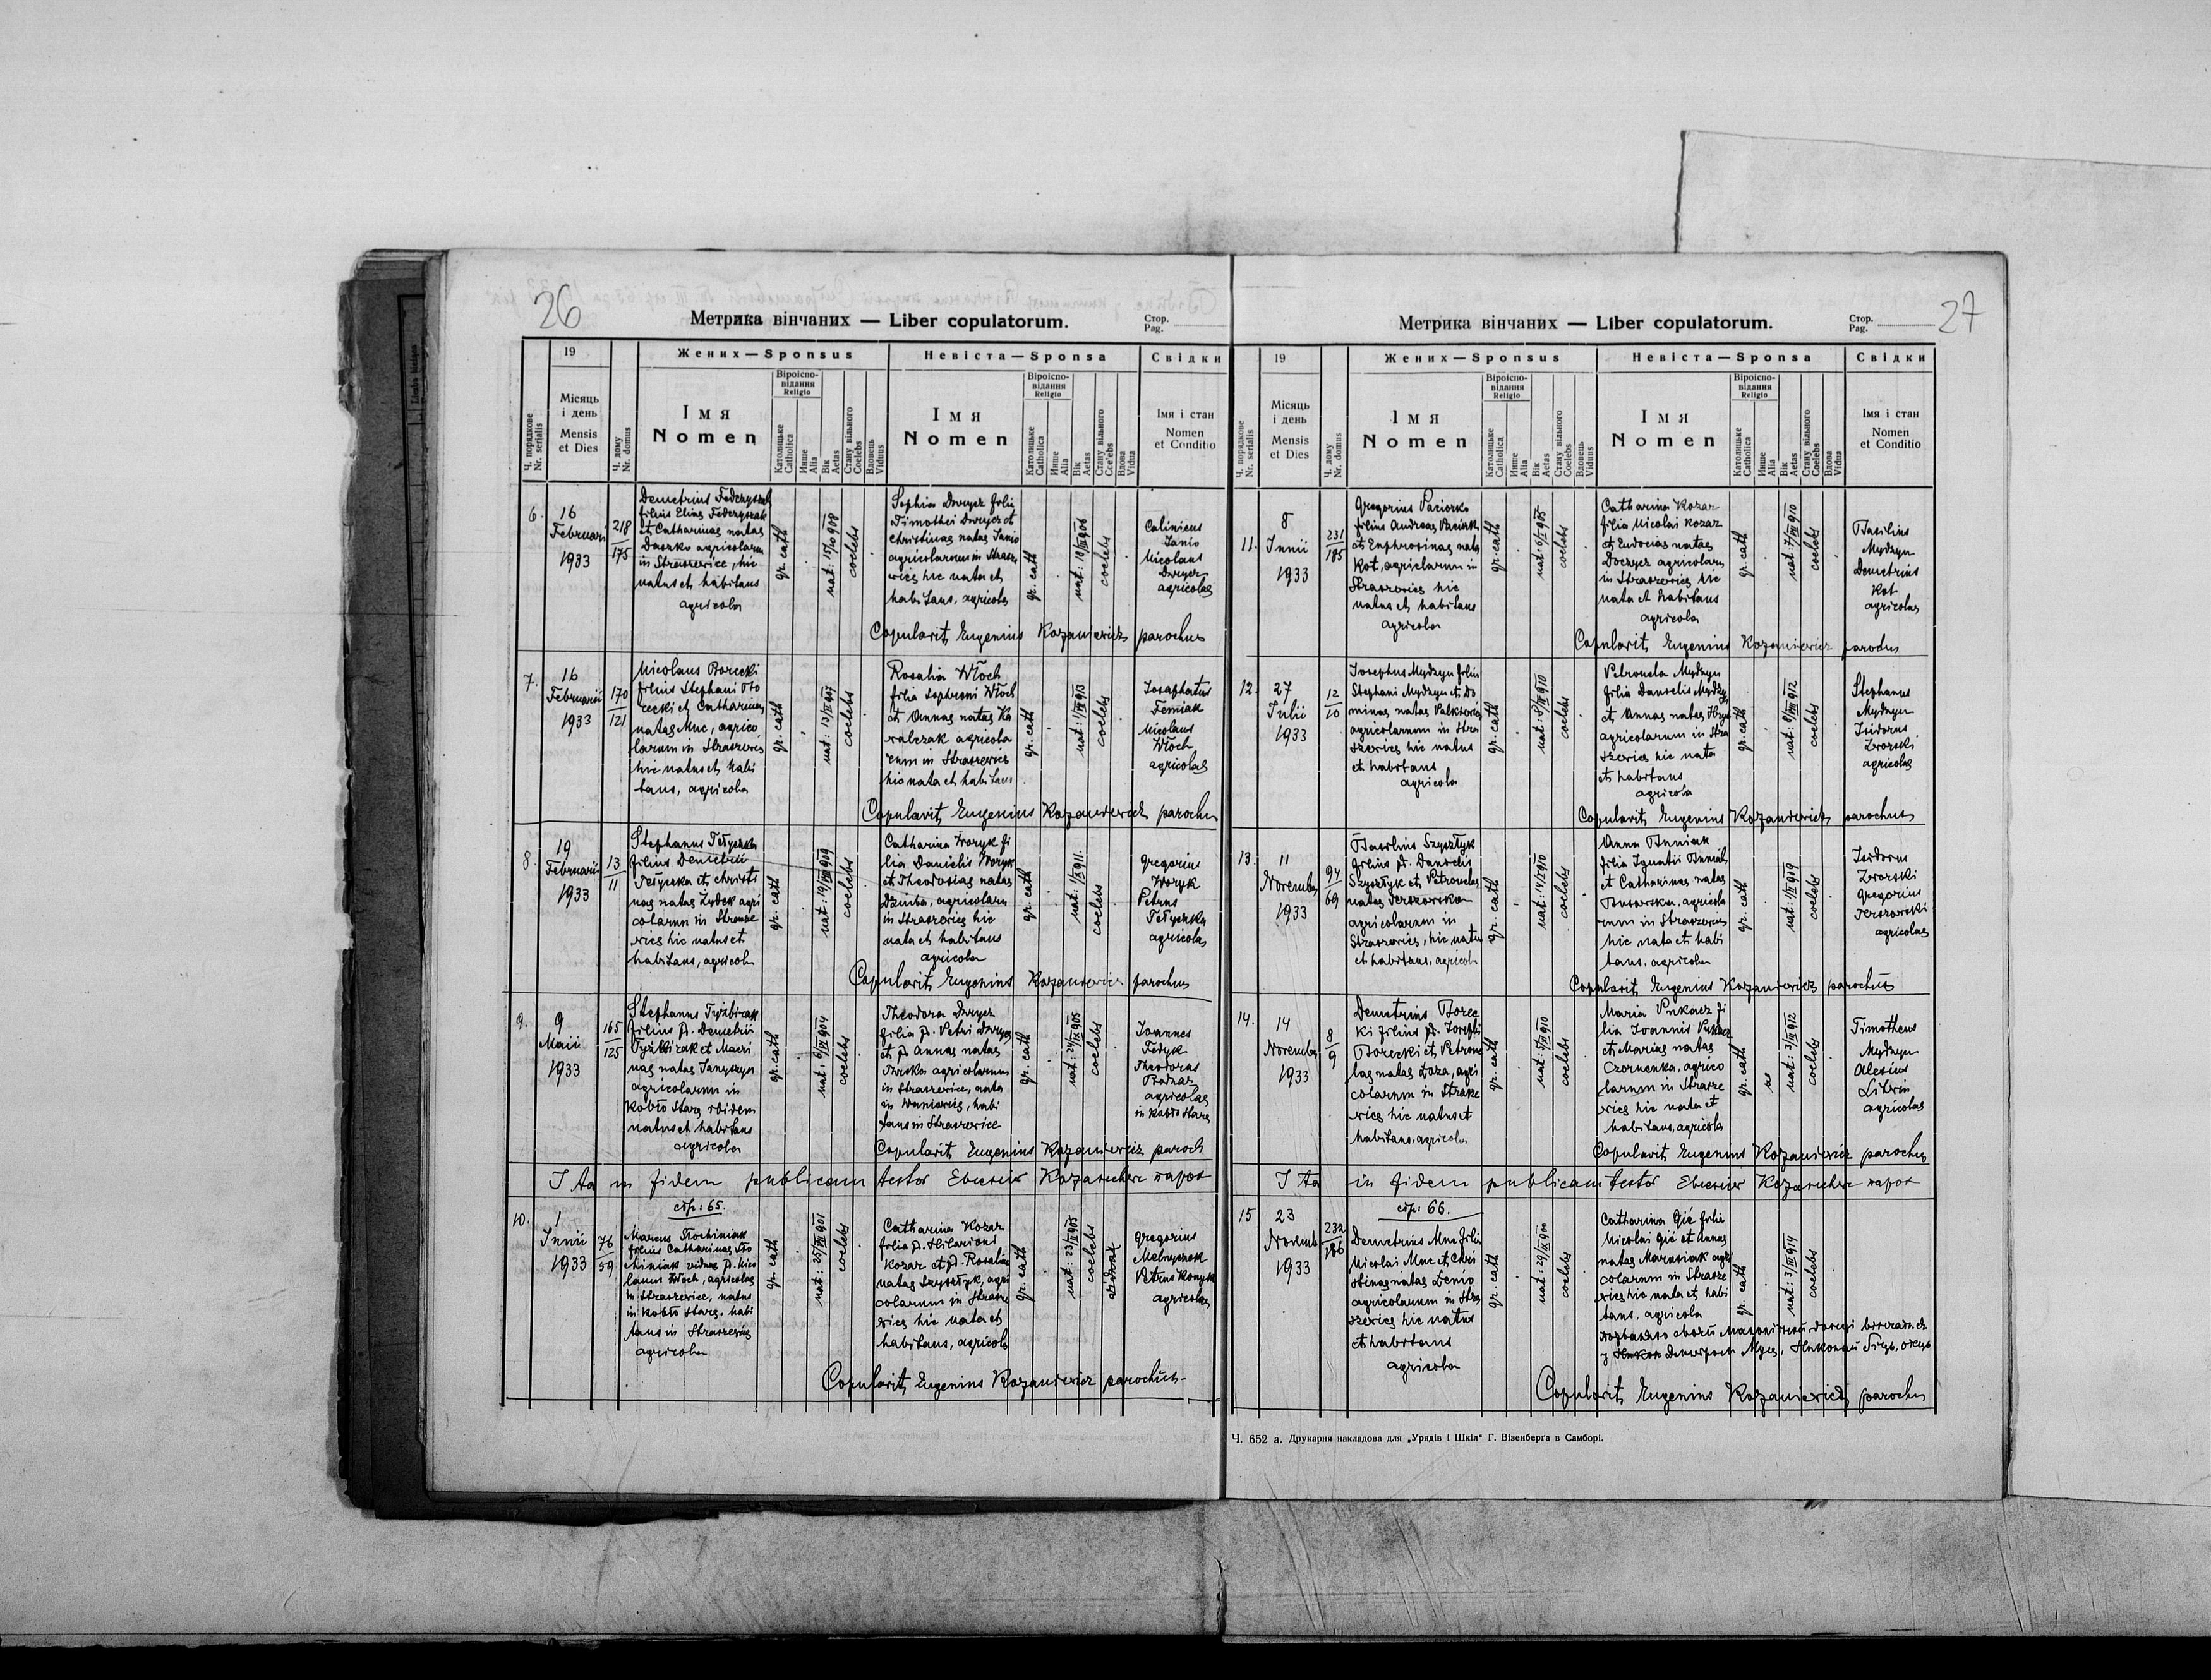 26
Метрика вінчаних — Liber copulatorum.
Стор.
Pag.
19
Жених — Sponsus
Невіста — Sponsa
Свідки
Ч. порядкове
Nr. serialis
Місяць
і день
Mensis
et Dies
Ч. дому
Nr. domus
Імя
Nomen
Віроіспо-
відання
Religio
Католицьке
Catholica
Инше
Alia
Вік
Aetas
Стану вільного
Coelebs
Вдовець
Viduus
Імя
Nomen
Віроіспо-
відання
Religio
Католицьке
Catholica
Инше
Alia
Вік
Aetas
Стану вільного
Coelebs
Вдова
Vidua
Імя і стан
Nomen
et Conditio
6.
16
Februarii
1933
218
175
Demetrius Fedczyszak
filius Eliae Fedczyszak
et Catharinae natae
Daszko agricolarum
in Straszewice, hic
natus et habitans
agricola
gr. cath
nat: 15/10 908
coelebs
Sophia Dwyer filia
Timothei Dwyer et
Christinae natae Janio
agricolarum in Strasze
wice hic nata et
habitans, agricola
gr. cath
coelebs
Calinicus
Janio
Nicolaus
Dwyer
agricolae
Copulavit Eugenius Kozaniewicz parochus
7.
16
Februarii
1933
170
121
Nicolaus Borecki
filius Stephani Bo
recki et Catharinae
natae Muc, agrico
larum in Straszewice
hic natus et habi
tans, agricola
gr. cath
nat: 13/II 907
coelebs
Rosalia Włoch
filia Sophroni Włoch
et Annae natae Ko
walczak agricola
rum in Straszewice
hic nata et habitans
gr. cath
coelebs
Josaphatus
Nicolaus
Włoch
agricolae
Copulavit Eugenius Kozaniewicz parochus
8.
19
Februarii
1933
13
11
Stephanus Tełyczka
filius Demetrii
Tełyczka et Christi
nae natae Żydek agri
colarum in Strasze
wice hic natus et
habitans, agricola
gr. cath
coelebs
Catharina Woryk fi
lia Danielis Woryk
et Theodosiae natae
Dziuba, agricolarum
in Straszewice hic
nata et habitans
agricola
gr. cath
coelebs
Gregorius
Woryk
Petrus
Tełyczka
agricolae
Copulavit Eugenius Kozaniewicz parochus
9.
9
Maii
1933
165
125
Stephanus
filius p. Demetrii
et Macri
nae natae Janyszyn
agricolarum in
Kobło Stare ibidem
natus et habitans
agricola
gr. cath
coelebs
Theodora Dwyer
filia p. Petri Dwyer
et p. Annae natae
agricolarum
in Straszewice, nata
in Waniowice, habi
tans in Straszewice
gr. cath
coelebs
Joannes
Fedyk
Theodorus
Bodnar
agricolae
in Kobło Stare
Copulavit Eugenius Kozaniewicz paroch
Ita in fidem publicam testor Евгений Козаневич парох
стр: 65.
10.
1
Junii
1933
76
59
Marcus Stochiniak
filius Catharinae Sto
chiniak viduae p. Nico
laum Włoch, agricolae
in Straszewice, natus
in Kobło Stare, habi
tans in Straszewice
agricola
gr. cath
nat: 25/VII 901
coelebs
Catharina Kozar
filia p. Hilarioni
Kozar et p. Rosaliae
natae Szysztyk, agri
colarum in Strasze
wice hic nata et
habitans, agricola
gr. cath
coelebs
Gregorius
Melnyczok
Petrus Konyk
agricolae
Copulavit Eugenius Kozaniewicz parochus
27
Метрика вінчаних — Liber copulatorum.
Стор.
Pag.
19
Жених — Sponsus
Невіста — Sponsa
Свідки
Ч. порядкове
Nr. serialis
Місяць
і день
Mensis
et Dies
Ч. дому
Nr. domus
Імя
Nomen
Віроіспо-
відання
Religio
Католицьке
Catholica
Инше
Alia
Вік
Aetas
Стану вільного
Coelebs
Вдовець
Viduus
Імя
Nomen
Віроіспо-
відання
Religio
Католицьке
Catholica
Инше
Alia
Вік
Aetas
Стану вільного
Coelebs
Вдова
Vidua
Імя і стан
Nomen
et Conditio
11.
8
Junii
1933
231
185
Gregorius Paciorko
filius Andreae Paciorko
et Euphrosinae natae
Kot, agricolarum in
Straszewice hic
natus et habitans
agricola
gr. cath
coelebs
Catharina Kozar
filia Nicolai Kozar
et Eudociae natae
agricolarum
in Straszewice hic
nata et habitans
agricola
gr. cath
coelebs
Basilius
Mydzyn
Demetrius
Kot
agricolae
Copulavit Eugenius Kozaniewicz parochus
12.
27
Julii
1933
12
10
Josephus Mydzyn filius
Stephani Mydzyn et Do
minae natae
agricolarum in Stra
szewice hic natus
et habitans
agricola
gr. cath
coelebs
Petronela Mydzyn
filia Danielis Mydzyn
et Annae natae
agricolarum in Stra
szewice hic nata
et habitans
agricola
gr. cath
coelebs
Stephanus
Mydzyn
Isidorus
Zworski
agricolae
Copulavit Eugenius Kozaniewicz parochus
13.
11
Novembris
1933
94
69
Basilius Szysztyk
filius p. Danielis
Szysztyk et Petronelae
natae Terszowska
agricolarum in
Straszewice, hic natus
et habitans, agricola
gr. cath
nat: 14/I 910
coelebs
Anna
filia Ignatii
et Catharinae natae
agricola
rum in Straszewice
hic nata et habi
tans, agricola
gr. cath
coelebs
Isidorus
Zworski
Gregorius
Terszowski
agricolae
Copulavit Eugenius Kozaniewicz parochus
14.
14
Novembris
1933
8
9
Demetrius Borec
ki filius p. Josephi
Borecki et Petrone
lae natae Łoza, agri
colarum in Strasze
wice hic natus et
habitans, agricola
gr. cath
coelebs
Maria Pukacz fi
lia Joannis Pukacz
et Mariae natae
Czornenka, agrico
larum in Strasze
wice hic nata et
habitans, agricola
gr. cath
coelebs
Timotheus
Mydzyn
Alexius
Librin
agricolae
Copulavit Eugenius Kozaniewicz parochus
Ita in fidem publicam testor Евгений Козаневич парох
стр: 66.
15
23
Novemb
1933
232
186
Demetrius Muc filius
Nicolai Muc et Chri
stinae natae Denio
agricolarum in Stra
szewice hic natus
et habitans
agricola
gr. cath
coelebs
Catharina Gić filia
Nicolai Gić et Annae
natae Marusiak agri
colarum in Strasze
wice hic nata et habi
tans, agricola
gr. cath
coelebs
Copulavit Eugenius Kozaniewicz parochus
Ч. 652 а. Друкарня накладова для „Урядів і Шкіл" Г. Візенберґа в Самборі.